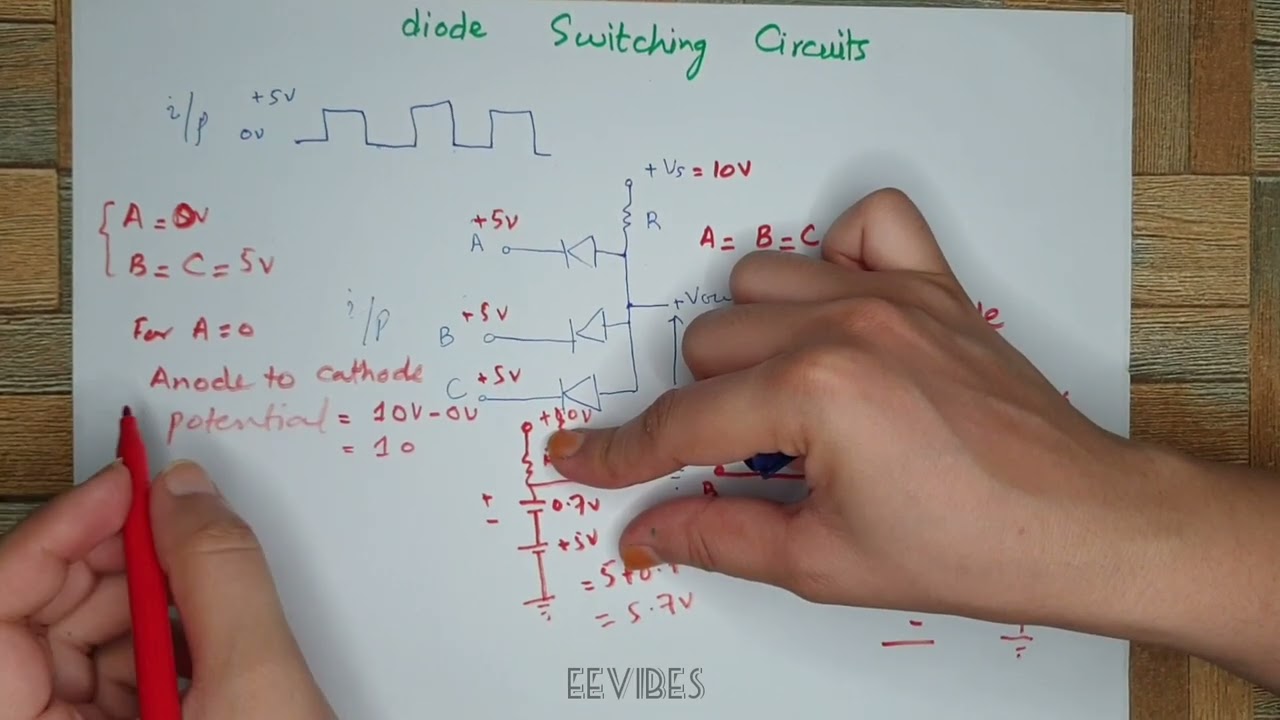 diode Switching Circuits
i/p +5V
0V
+Vs = 10V
A = 0V
B = C = 5V
+5V
A
R
A = B = C
For A = 0
i/p
+5V
B
Anode to cathode
C +5V
potential = 10V - 0V
= 10
0.7V
+
-
+5V
B
= 5.7V
EEVIBES